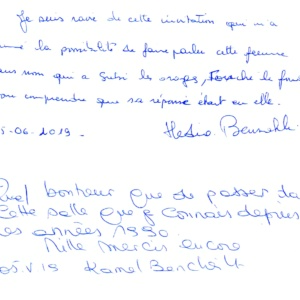 Je suis ravie de cette invitation qui m'a
la possibilité de faire parler cette femme
sans nom qui a subi les orages, Touche le fond
pour comprendre que sa réponse était en elle.
5-06-2019.
Quel bonheur que de passer da
Cette salle que je connais depuis
les années 1990
Mille mercis encore
05.V.19 Kamel Bencheikh